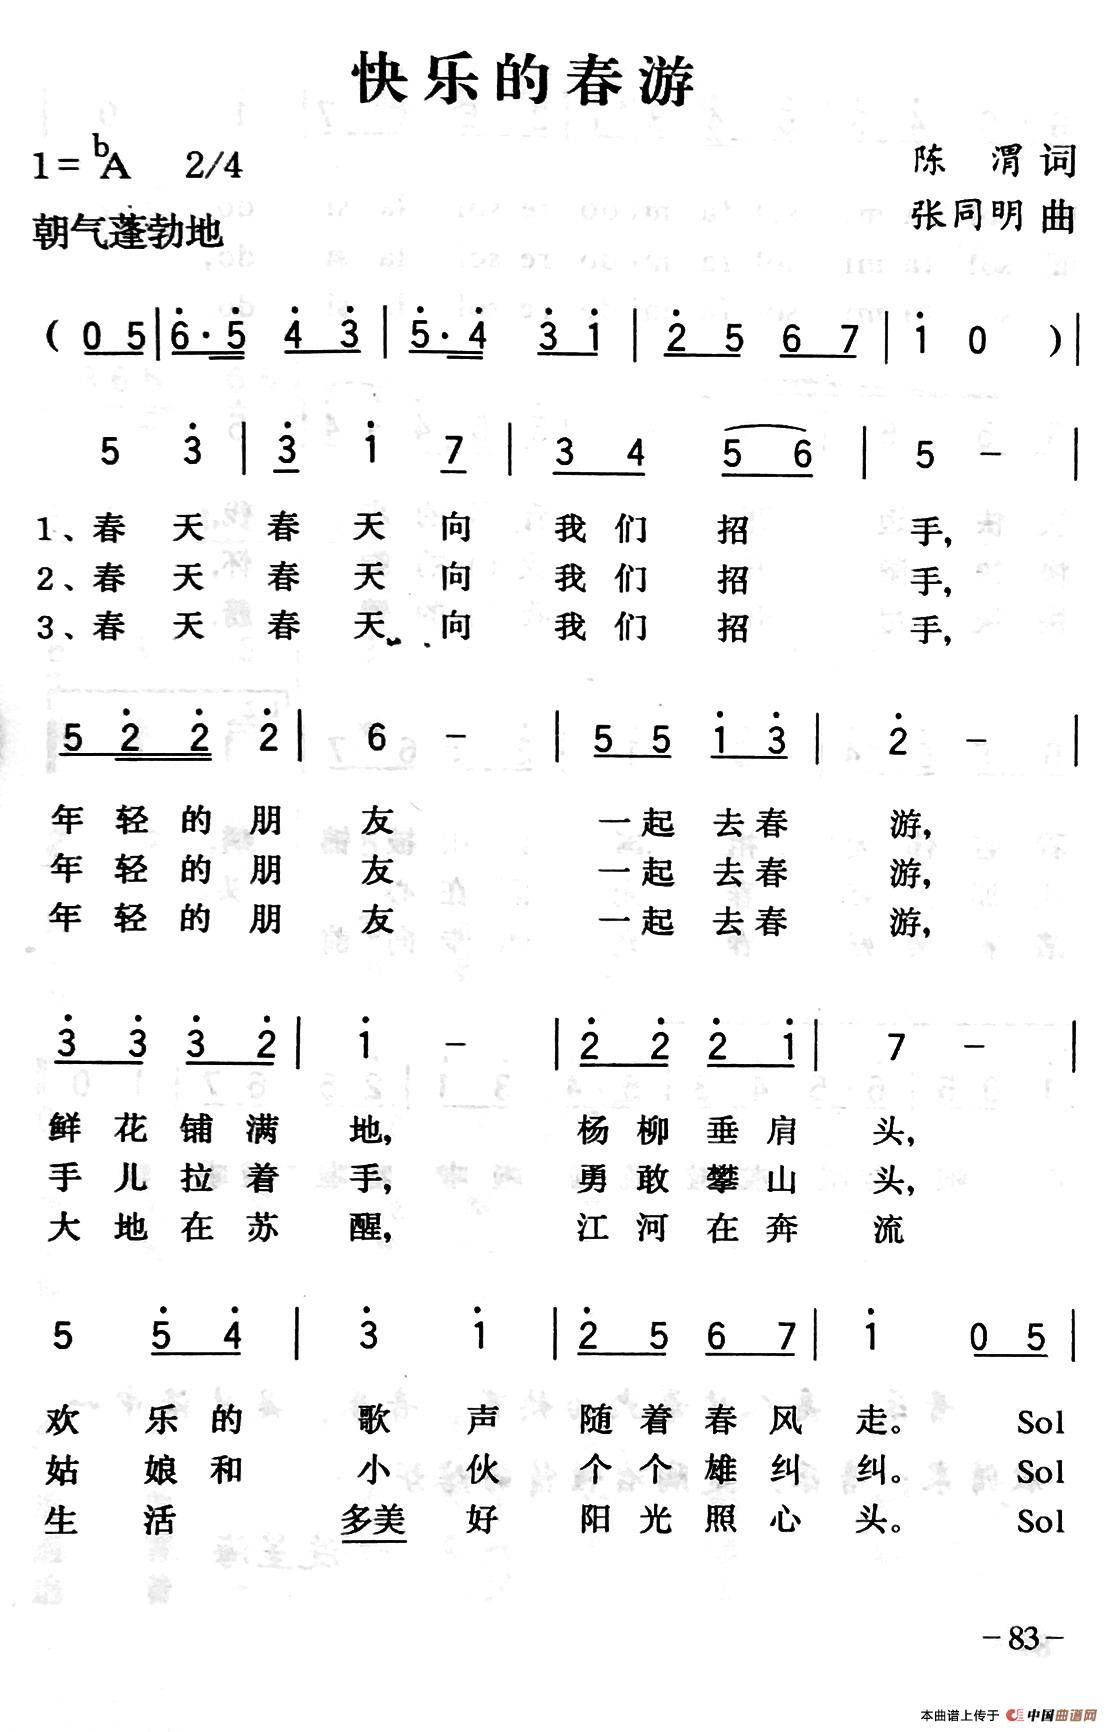 快乐的春游
1=bA 2/4 陈 渭 词
朝气蓬勃地 张同明 曲
( 0 5 | 6·5 4 3 | 5·4 3 1 | 2 5 6 7 | 1 0 ) |
5 3 | 3 1 7 | 3 4 5 6 | 5 - |
1、春天春天向 我们招 手,
2、春天春天向 我们招 手,
3、春天春天向 我们招 手,
5 2 2 2 | 6 - | 5 5 1 3 | 2 - |
年轻的朋 友 一起去春 游,
年轻的朋 友 一起去春 游,
年轻的朋 友 一起去春 游,
3 3 3 2 | 1 - | 2 2 2 1 | 7 - |
鲜花铺满 地, 杨柳垂肩 头,
手儿拉着 手, 勇敢攀山 头,
大地在苏 醒, 江河在奔 流
5 5 4 | 3 1 | 2 5 6 7 | 1 0 5 |
欢 乐的 歌 声 随着春风 走。 Sol
姑 娘和 小 伙 个个雄纠 纠。 Sol
生 活 多美 好 阳光照心 头。 Sol
-83-
本曲谱上传于 中国曲谱网